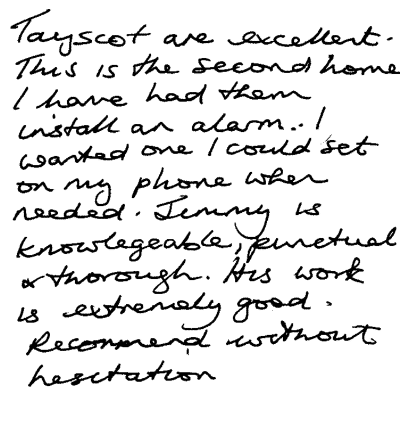 Tayscot are excellent.
This is the second home
I have had them
install an alarm.. I
wanted one I could set
on my phone when
needed. Jimmy is
knowlegeable, punctual
& thorough. His work
is extremely good.
Recommend without
hesitation